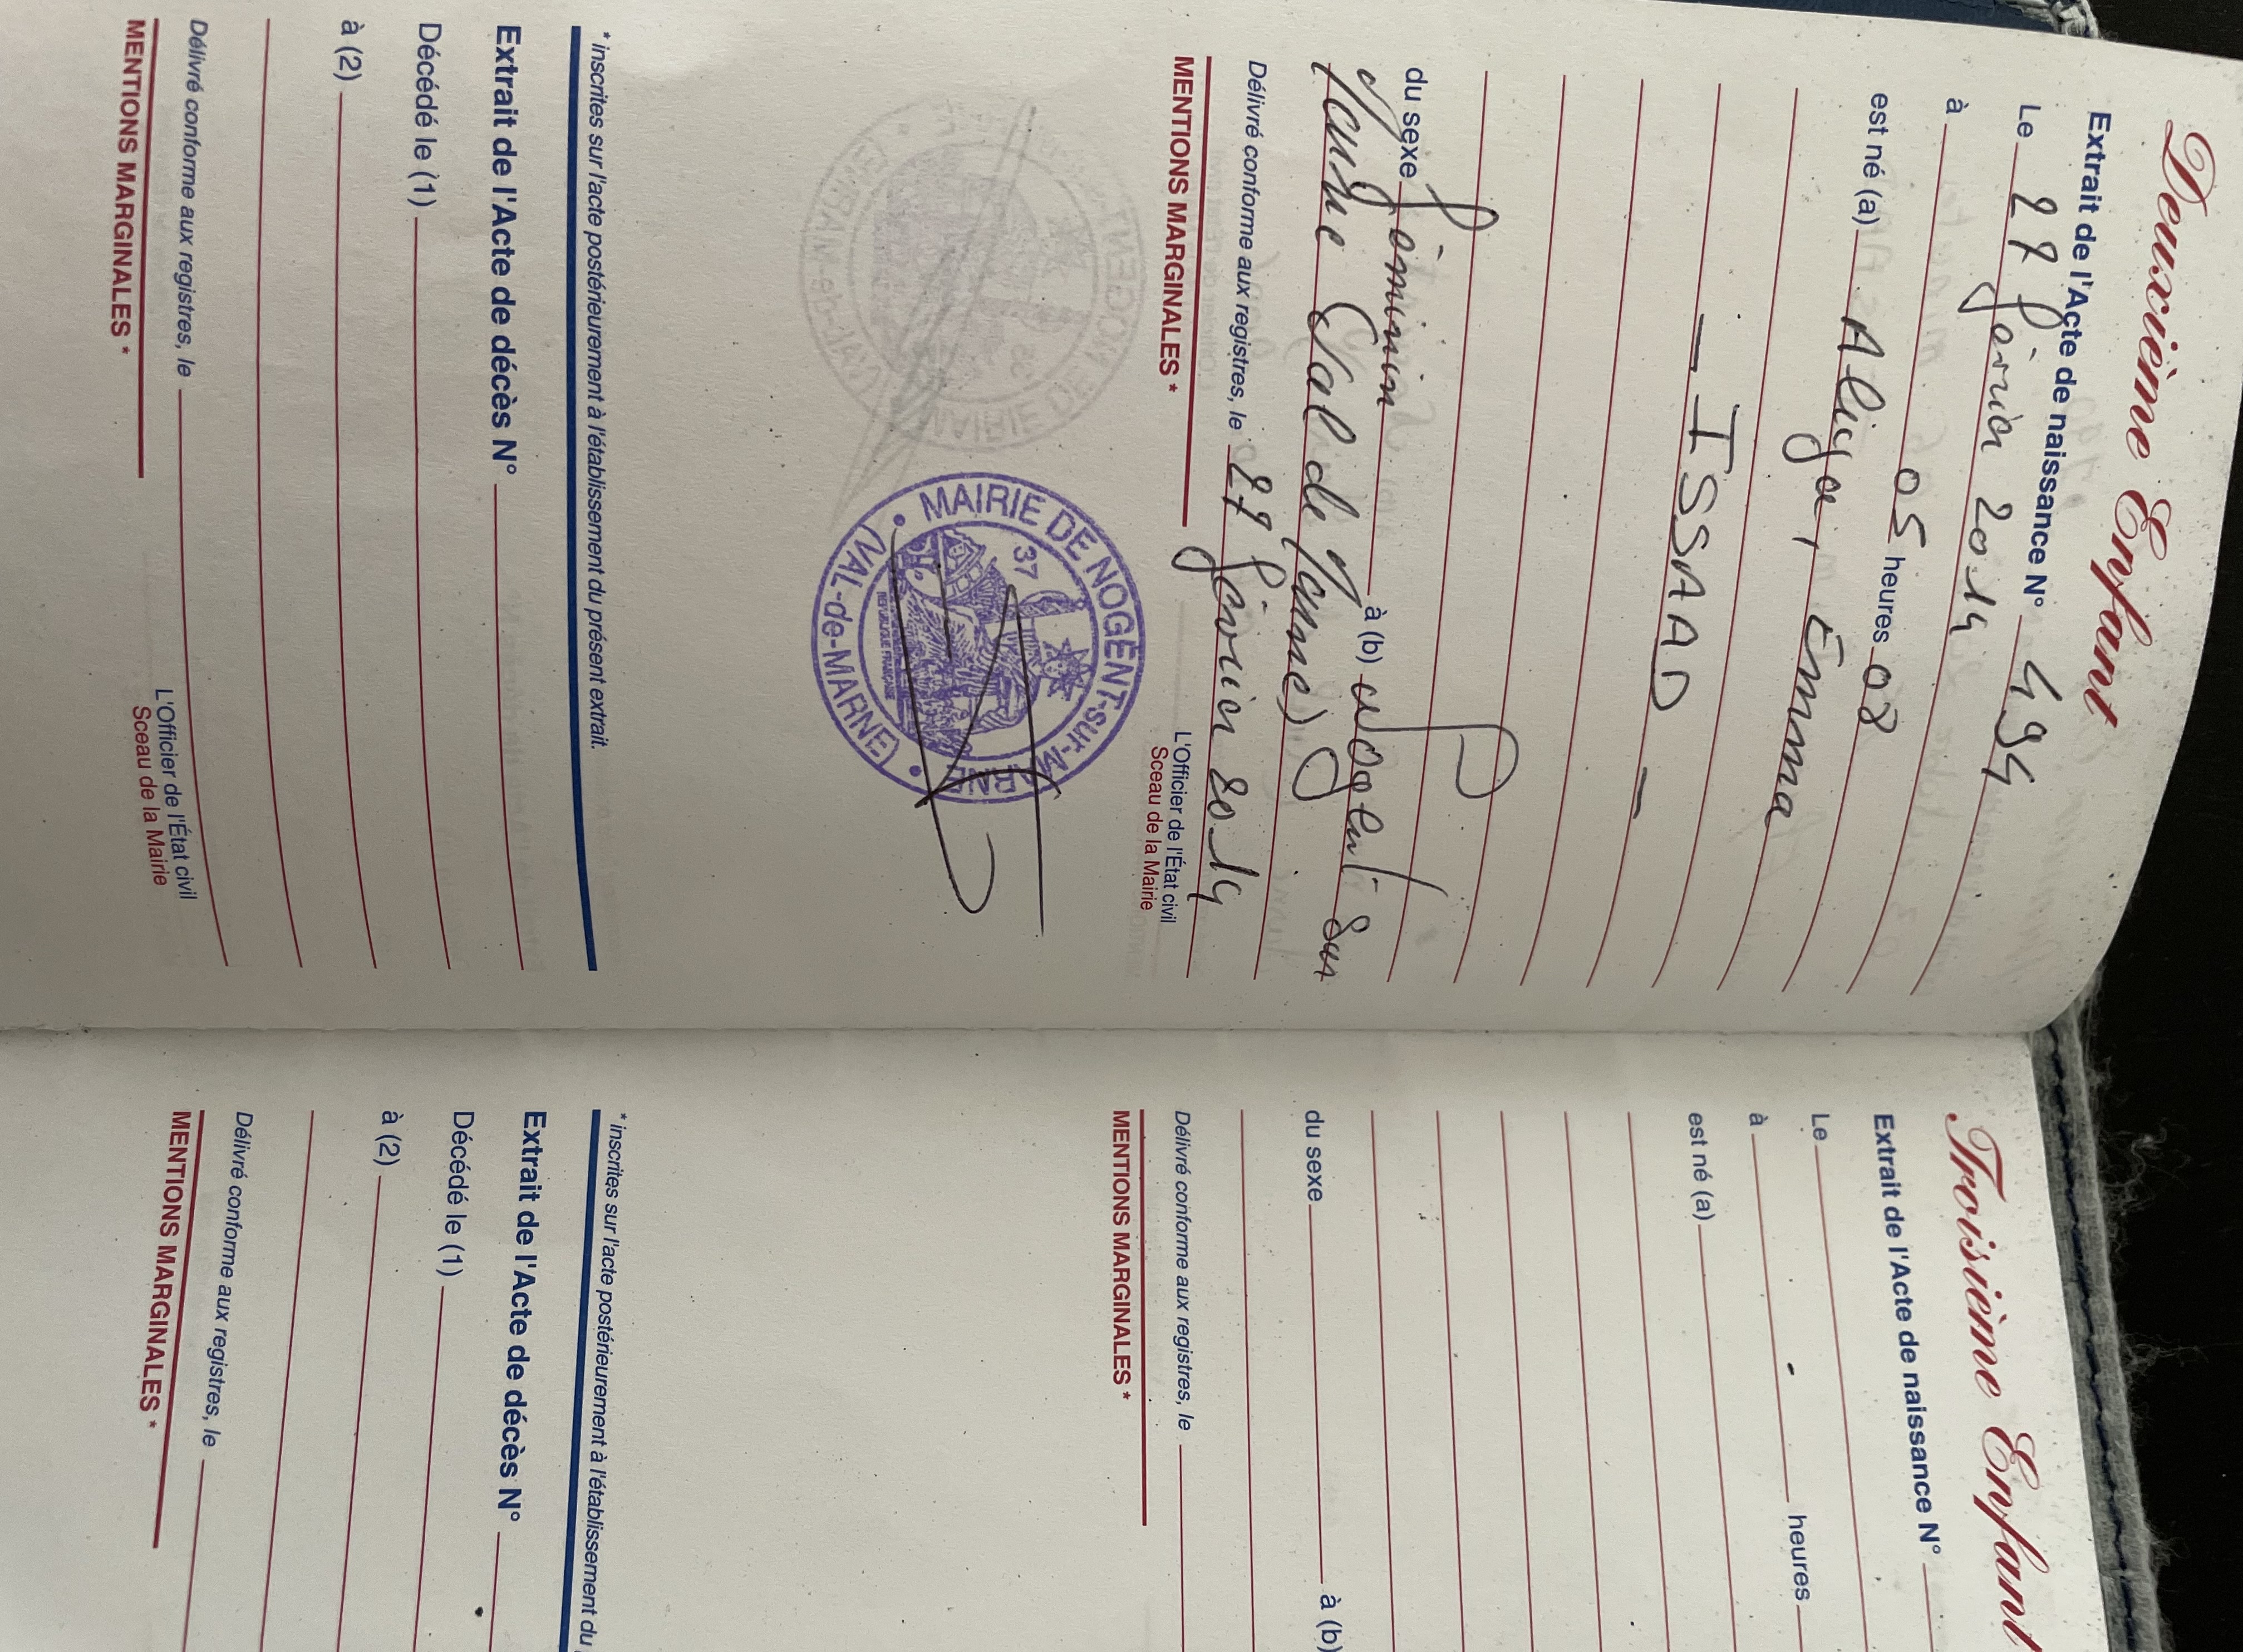 Deuxième Enfant
Extrait de l'Acte de naissance N° 494
Le 27 février 2014
à 05 heures 08
est né (a) Alicya, Emma
— ISSAAD —
du sexe féminin à (b) Nogent sur
Marne (Val de Marne)
Délivré conforme aux registres, le 27 février 2014
MENTIONS MARGINALES *
L'Officier de l'État civil
Sceau de la Mairie
MAIRIE DE NOGENT-sur-MARNE
(VAL-de-MARNE)
37
REPUBLIQUE FRANCAISE
* inscrites sur l'acte postérieurement à l'établissement du présent extrait.
Extrait de l'Acte de décès N°
Décédé le (1)
à (2)
Délivré conforme aux registres, le
MENTIONS MARGINALES *
L'Officier de l'État civil
Sceau de la Mairie
Troisième Enfant
Extrait de l'Acte de naissance N°
Le
à heures
est né (a)
du sexe à (b)
Délivré conforme aux registres, le
MENTIONS MARGINALES *
* inscrites sur l'acte postérieurement à l'établissement du
Extrait de l'Acte de décès N°
Décédé le (1)
à (2)
Délivré conforme aux registres, le
MENTIONS MARGINALES *